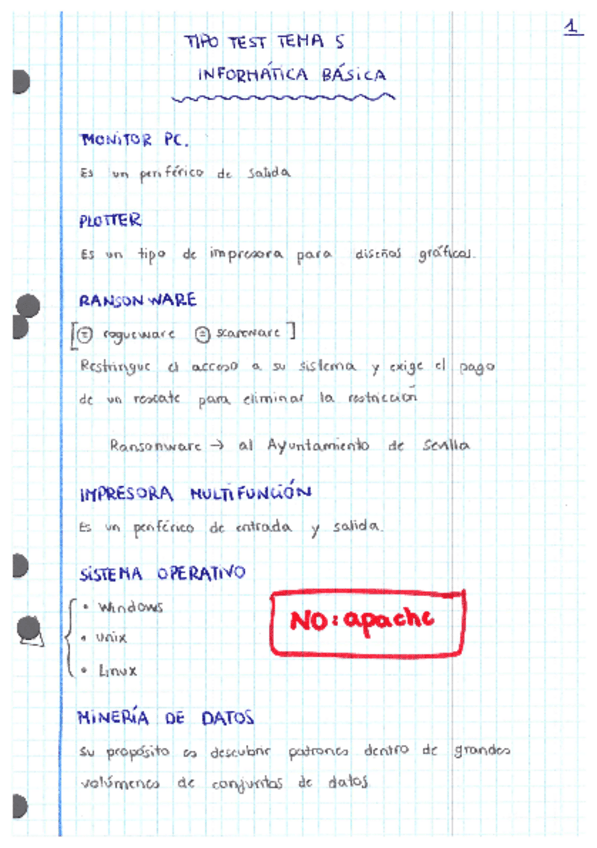 1
TIPO TEST TEMA 5
INFORMÁTICA BÁSICA
MONITOR PC.
Es un periférico de salida
PLOTTER
Es un tipo de impresora para diseños gráficos.
RANSONWARE
[= rogueware = scareware]
Restringue el acceso a su sistema y exige el pago
de un rescate para eliminar la restricción
Ransomware → al Ayuntamiento de Sevilla
IMPRESORA MULTIFUNCIÓN
Es un periférico de entrada y salida.
SISTEMA OPERATIVO
• Windows
• unix
• Linux
NO: apache
MINERÍA DE DATOS
Su propósito es descubrir patrones dentro de grandes
volúmenes de conjuntos de datos.